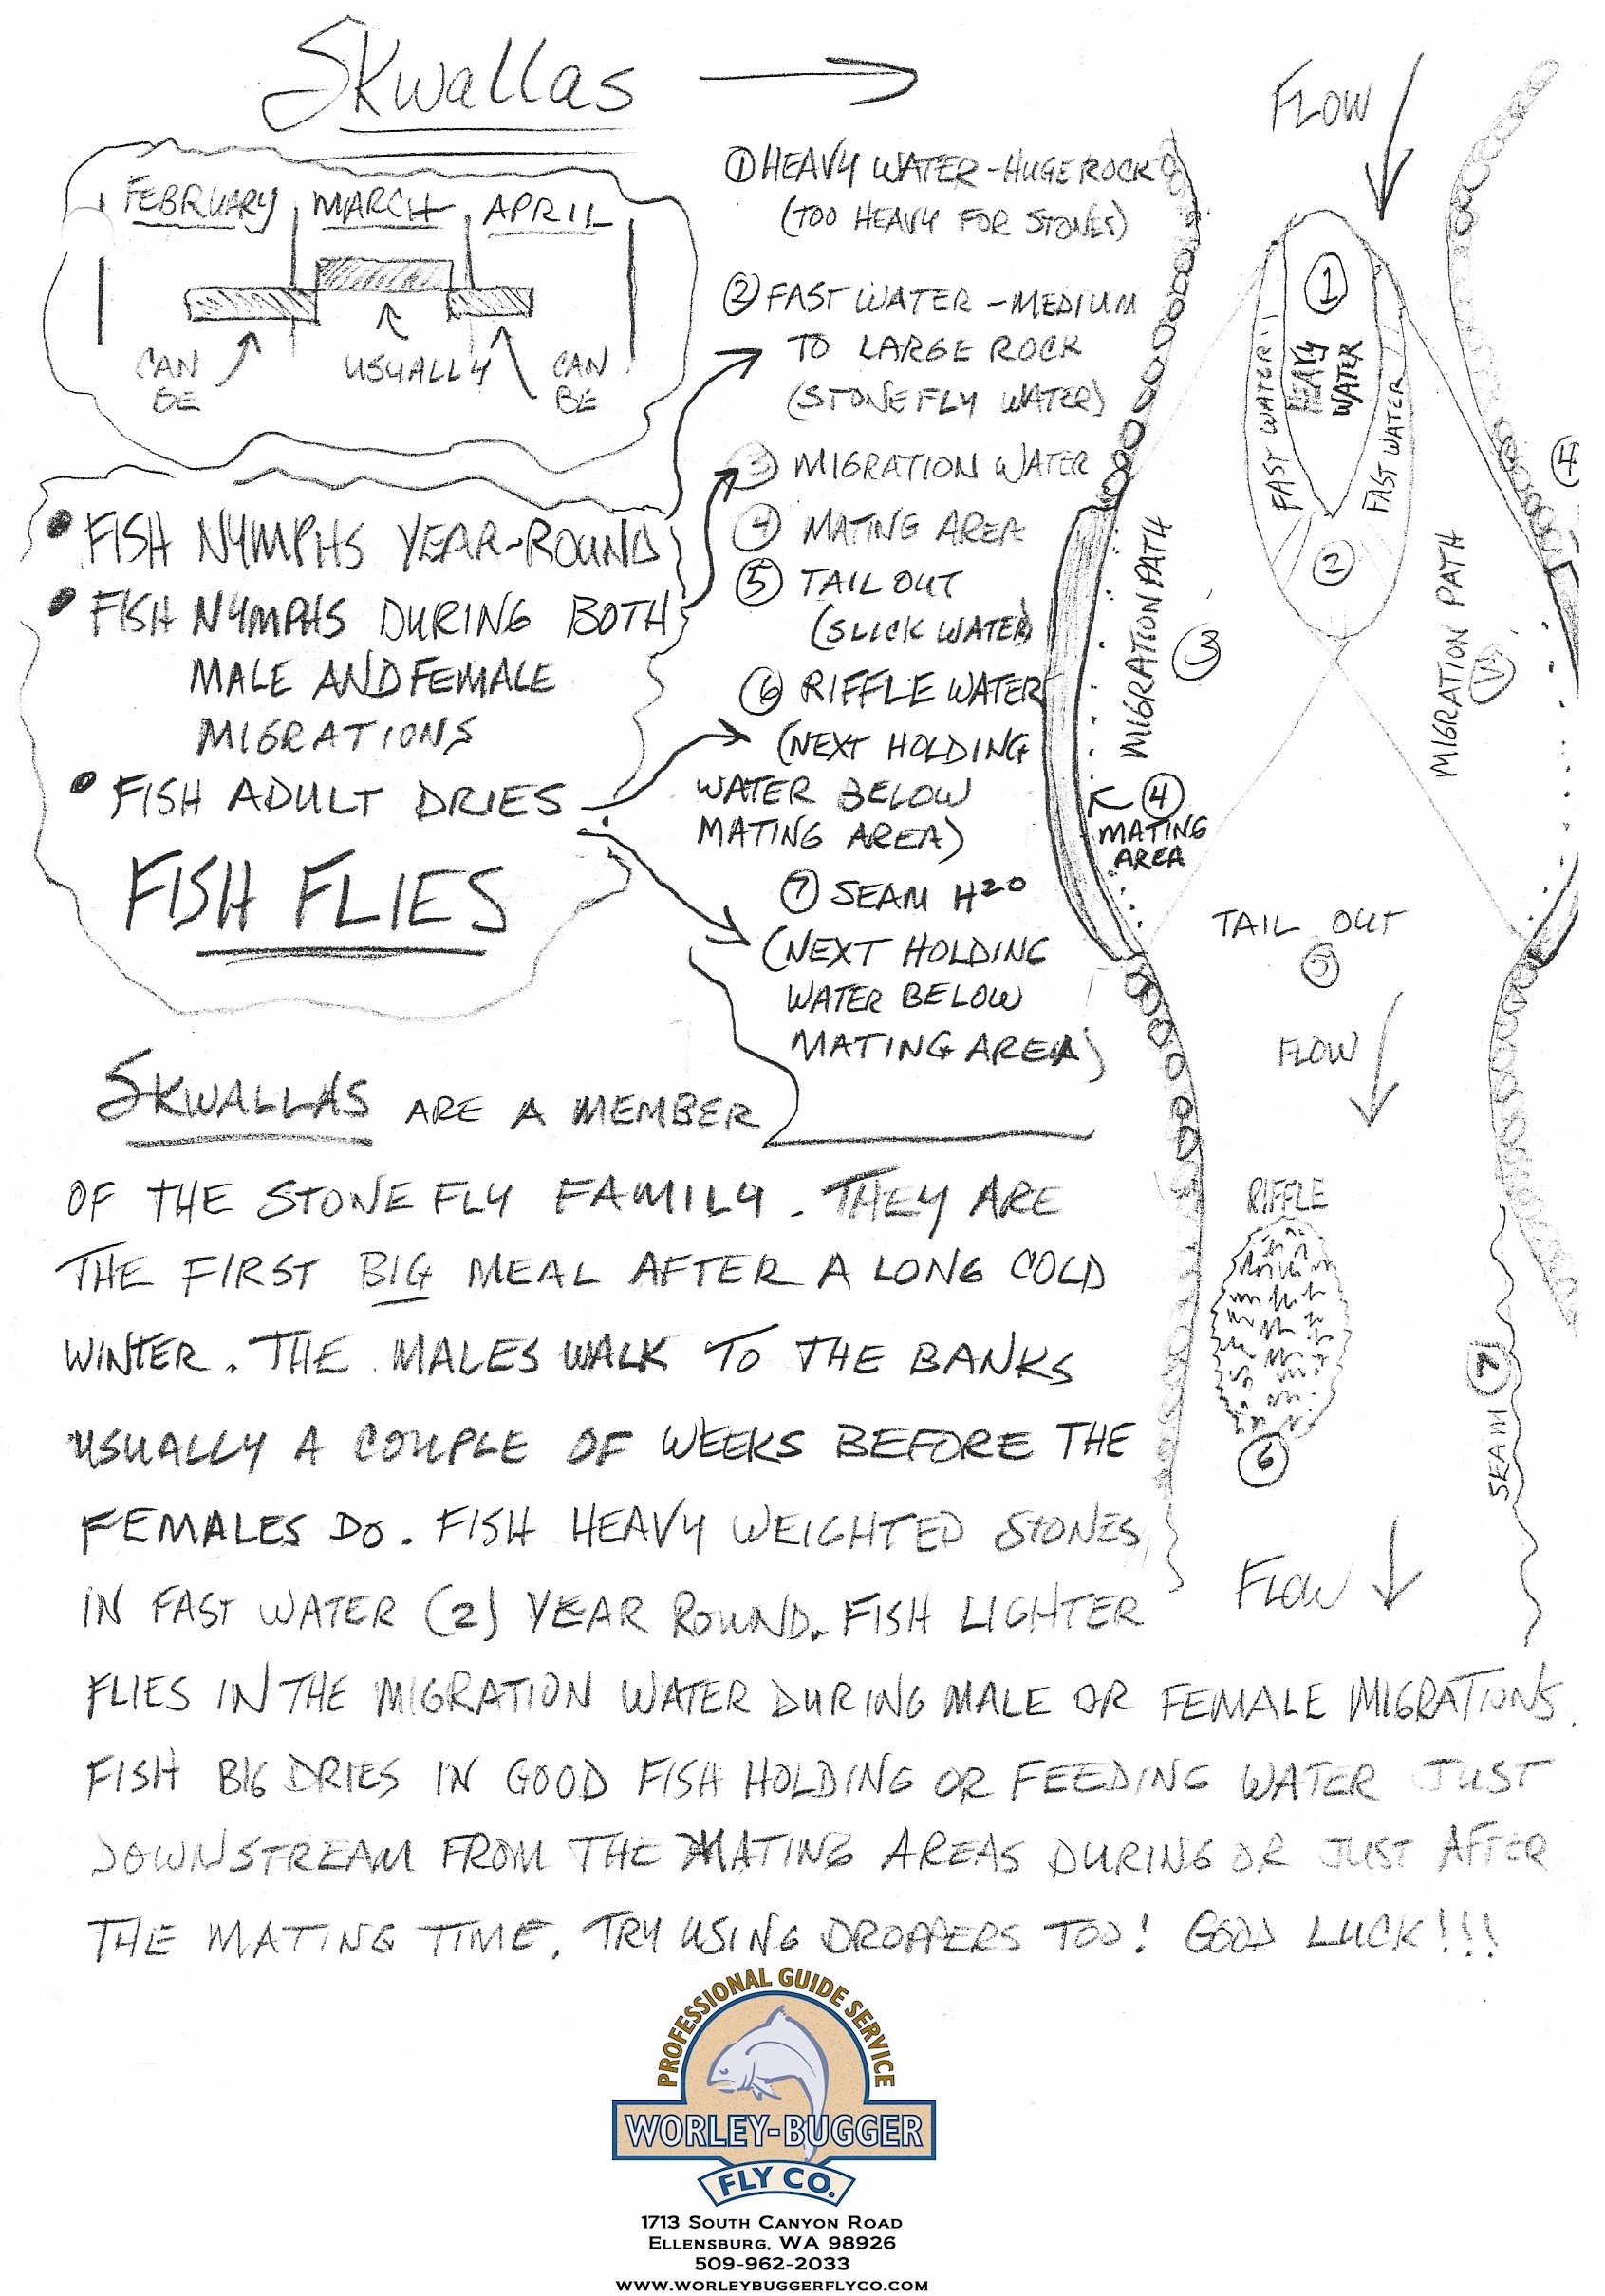 Skwallas
FEBRUARY MARCH APRIL
CAN BE
USUALLY
CAN BE
• FISH NYMPHS YEAR-ROUND
• FISH NYMPHS DURING BOTH
MALE AND FEMALE
MIGRATIONS
• FISH ADULT DRIES
FISH FLIES
① HEAVY WATER - HUGE ROCK
(TOO HEAVY FOR STONES)
② FAST WATER - MEDIUM
TO LARGE ROCK
(STONE FLY WATER)
③ MIGRATION WATER
④ MATING AREA
⑤ TAIL OUT
(SLICK WATER)
⑥ RIFFLE WATER
(NEXT HOLDING
WATER BELOW
MATING AREA)
⑦ SEAM H²O
(NEXT HOLDING
WATER BELOW
MATING AREA)
FLOW
①
HEAVY
WATER
FAST WATER
FAST WATER
②
④
MIGRATION PATH
③
MIGRATION PATH
④
MATING
AREA
TAIL OUT
⑤
FLOW
RIFFLE
⑥
SEAM ⑦
FLOW
SKWALLAS ARE A MEMBER
OF THE STONE FLY FAMILY. THEY ARE
THE FIRST BIG MEAL AFTER A LONG COLD
WINTER. THE MALES WALK TO THE BANKS
USUALLY A COUPLE OF WEEKS BEFORE THE
FEMALES DO. FISH HEAVY WEIGHTED STONES
IN FAST WATER (2) YEAR ROUND. FISH LIGHTER
FLIES IN THE MIGRATION WATER DURING MALE OR FEMALE MIGRATIONS.
FISH BIG DRIES IN GOOD FISH HOLDING OR FEEDING WATER JUST
DOWNSTREAM FROM THE MATING AREAS DURING OR JUST AFTER
THE MATING TIME. TRY USING DROPPERS TOO! GOOD LUCK!!!
PROFESSIONAL GUIDE SERVICE
WORLEY-BUGGER
FLY CO.
1713 SOUTH CANYON ROAD
ELLENSBURG, WA 98926
509-962-2033
WWW.WORLEYBUGGERFLYCO.COM